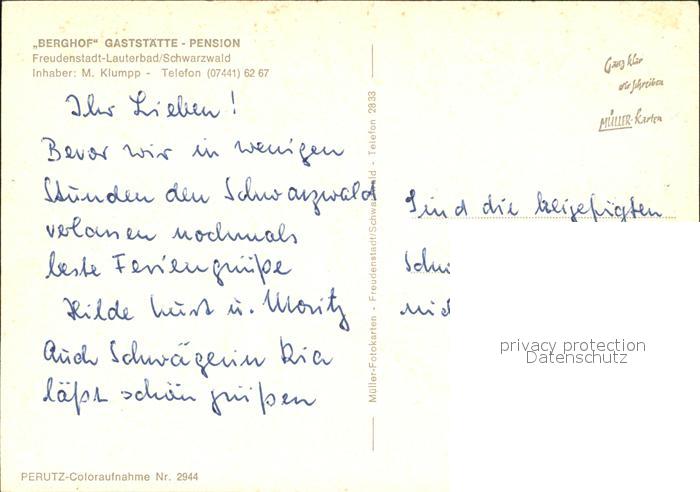 „BERGHOF“ GASTSTÄTTE - PENSION
Freudenstadt-Lauterbad/Schwarzwald
Inhaber: M. Klumpp - Telefon (07441) 62 67
Ihr Lieben!
Bevor wir in wenigen
Stunden den Schwarzwald
verlassen nochmals
beste Feriengrüße
Hilde Kurt u. Moritz
Auch Schwägerin Ria
läßt schön grüßen
PERUTZ-Coloraufnahme Nr. 2944
Müller-Fotokarten - Freudenstadt/Schwarzwald - Telefon 2833
Ganz klar
wir schreiben
MÜLLER-Karten
Sind die beigefügten
privacy protection
Datenschutz